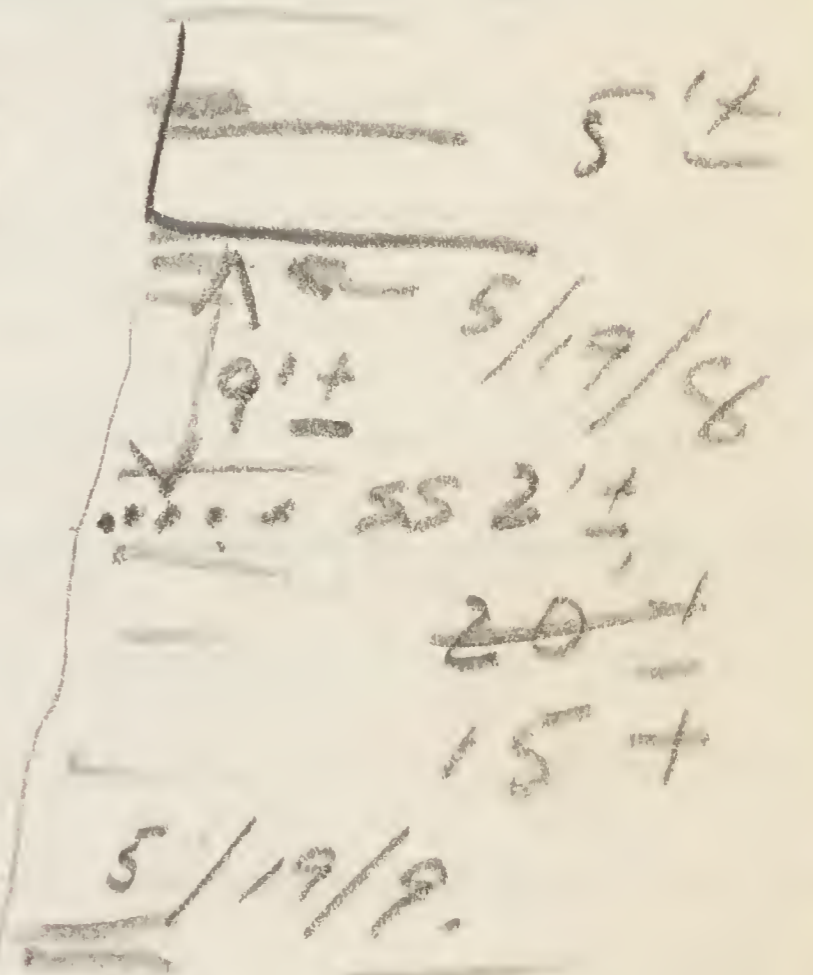 5'±
5/19/8
9'±
SS 2'±
20 ±
15 +
5/19/9.